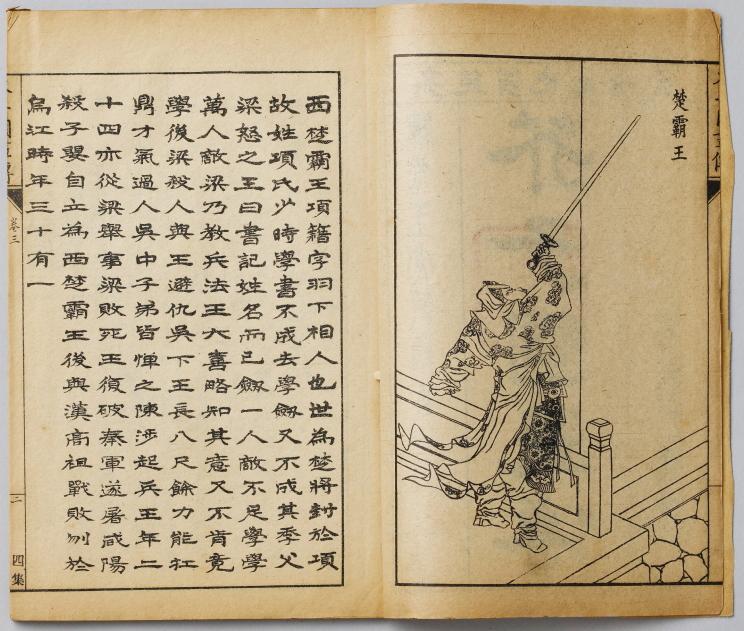 楚霸王
西楚霸王項籍字羽下相人也世為楚將封於項
故姓項氏少時學書不成去學劔又不成其季父
梁怒之王曰書記姓名而已劔一人敵不足學學
萬人敵梁乃教兵法王大喜略知其意又不肯竟
學後梁殺人與王避仇吳下王長八尺餘力能扛
鼎才氣過人吳中子弟皆憚之陳涉起兵王年二
十四亦從梁舉事梁敗死王復破秦軍遂屠咸陽
殺子嬰自立為西楚霸王後與漢高祖戰敗刎於
烏江時年三十有一
卷三
三
四集